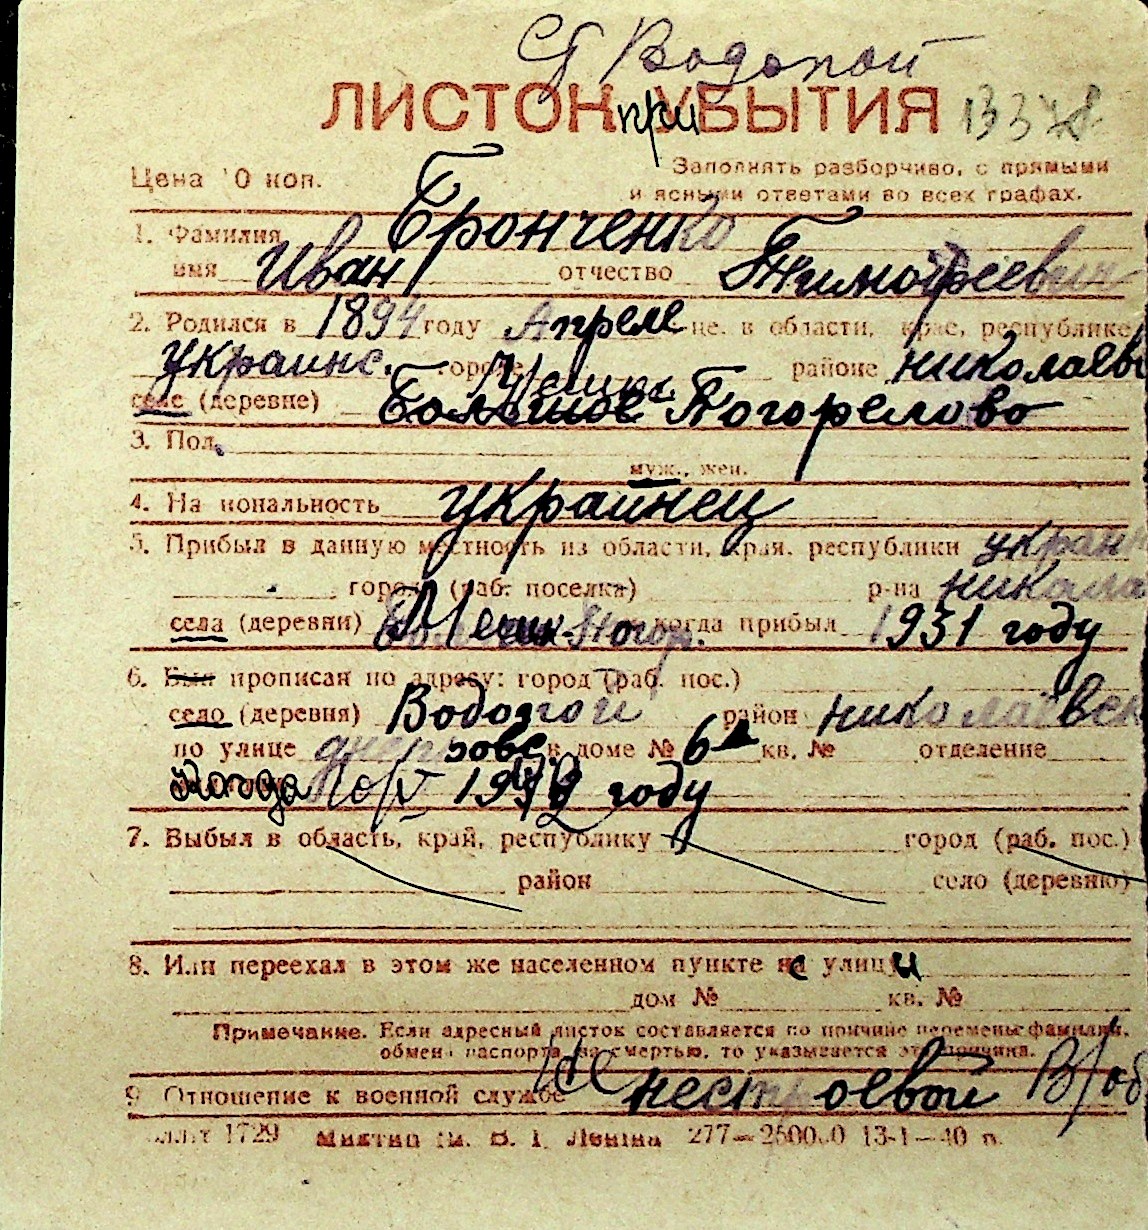 Ст Водопой
ЛИСТОК при УБЫТИЯ 13378
Цена 10 коп. Заполнять разборчиво, с прямыми
и ясными ответами во всех графах.
1. Фамилия Бронченко
имя Иван отчество Тимофеевич
2. Родился в 1894 году Апреле м-це. в области, крае, республике
украинс. городе районе николаевс
селе (деревне) Мешк. Погорелово
3. Пол
муж., жен.
4. Национальность украйнец
5. Прибыл в данную местность из области, края, республики украин
город (раб. поселка) р-на никола
села (деревни) Мешк-Погор. когда прибыл 1931 году
6. Был прописан по адресу: город (раб. пос.)
село (деревня) Водопой район николаевск
по улице днепровс. в доме № 6а кв. № отделение
Когда году
7. Выбыл в область, край, республику город (раб. пос.)
район село (деревню)
8. Или переехал в этом же населенном пункте с улицы
дом № кв. №
Примечание. Если адресный листок составляется по причине перемены фамилии,
обмена паспорта, за смертью, то указывается эта причина.
9. Отношение к военной службе нестроевой
1729 Миктип им. В. І. Леніна 277—250000 13-1—40 п.